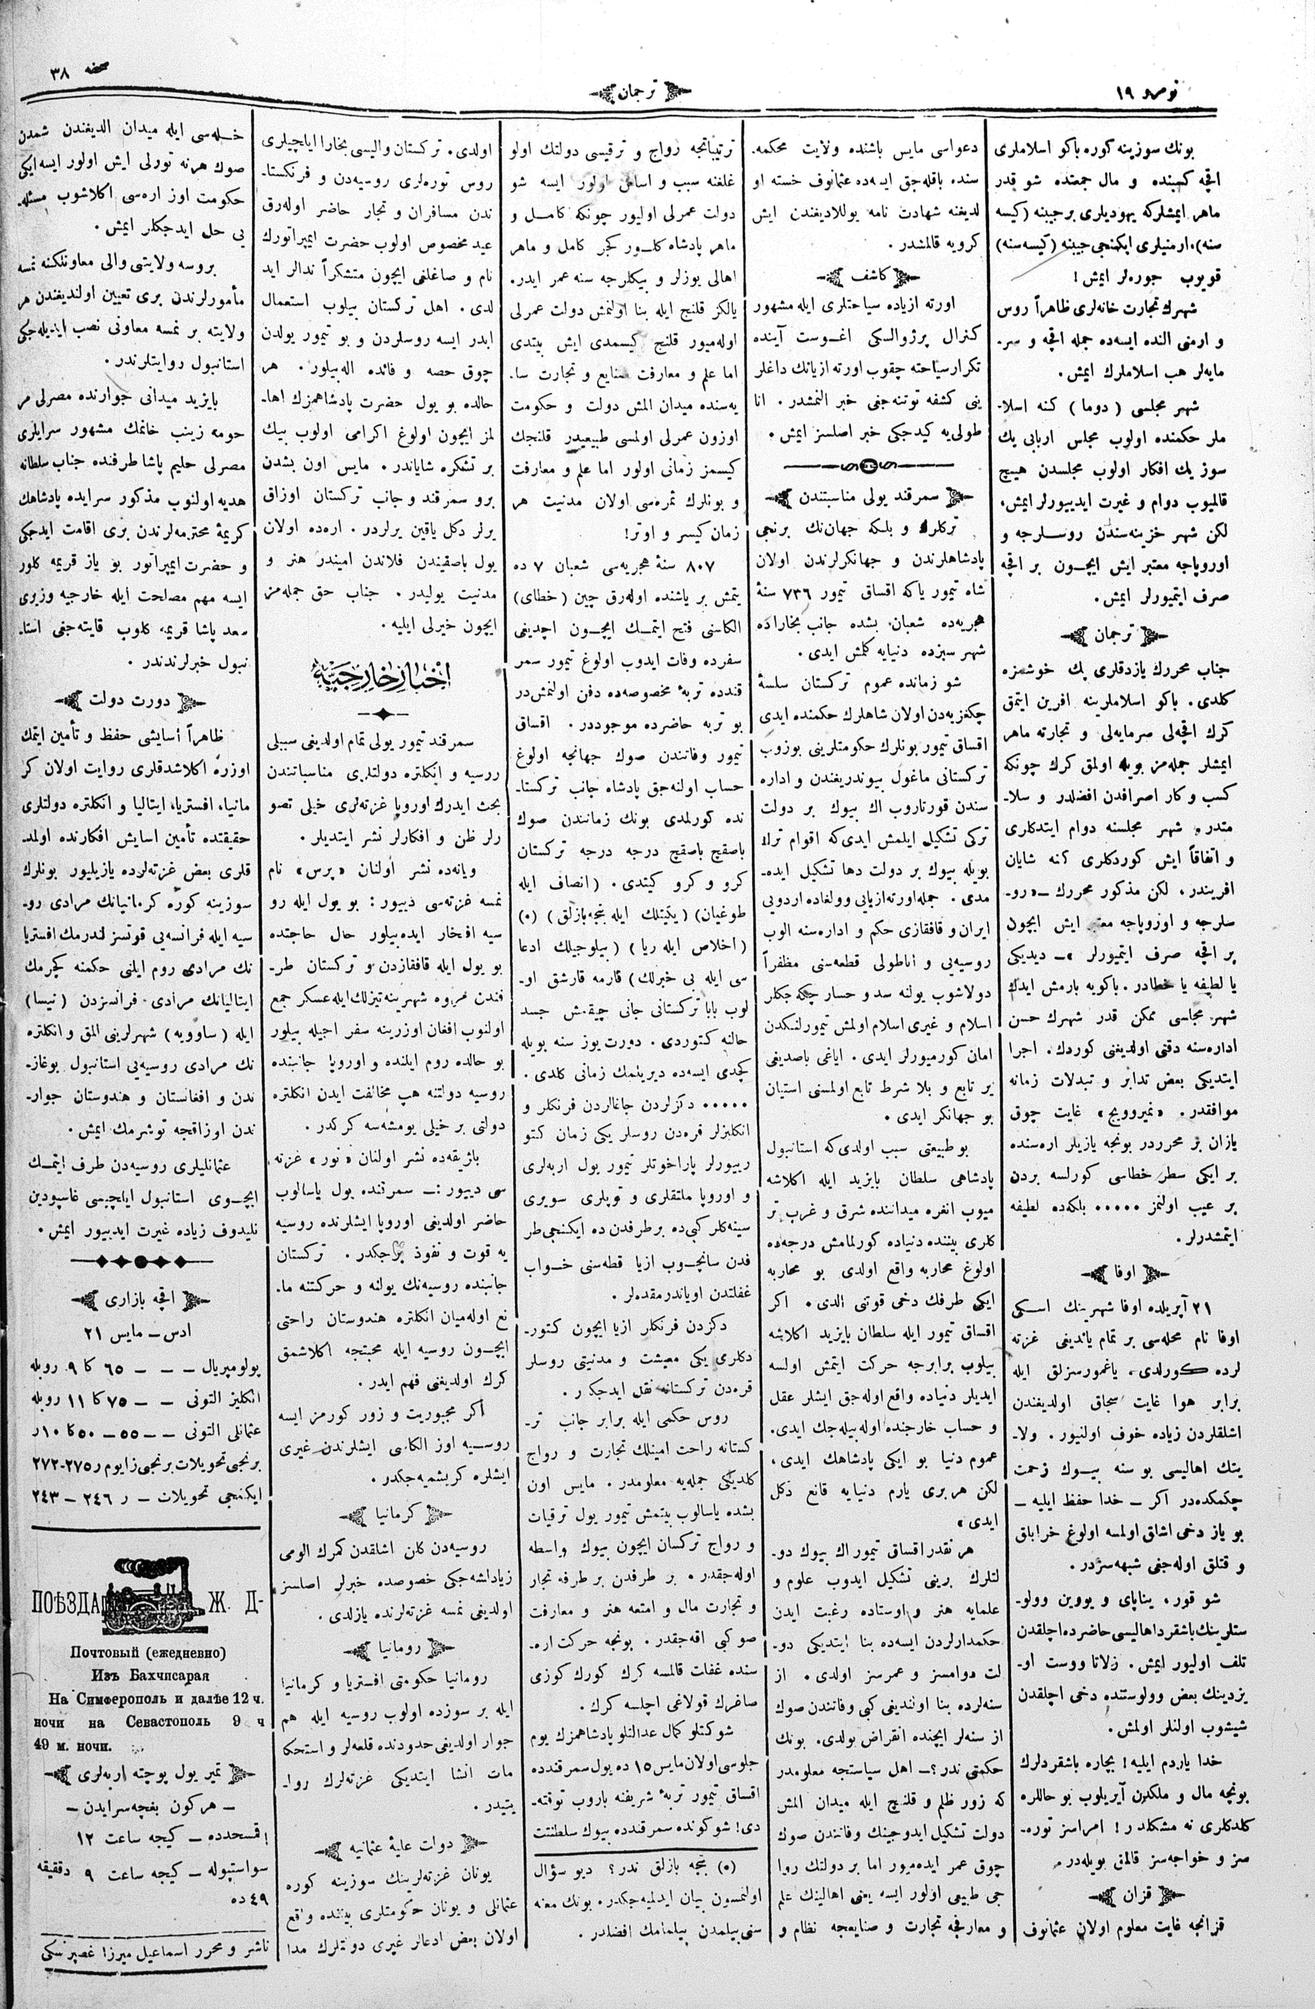 نومرو ١٩
ترجمان
صحفه ٣٨
بونك سوزينه كوره باكو اسلاملرى
اقچه كسبنده و مال جمعنده شو قدر
ماهر ايمشلركه يهوديلرى برجيبنه (كيسه
سنه)، ارمنيلرى ايكنجى جيبنه (كيسه‌سنه)
قويوب جوره‌لر ايمش!
شهرك تجارت خانه‌لرى ظاهراً روس
و ارمنى النده ايسه‌ده جمله اقچه و سر-
مايه‌لر هب اسلاملرك ايمش.
شهر مجلسى (دوما) كنه اسلا-
ملر حكمنده اولوب مجلس اربابى يك
سوز يك افكار اولوب مجلسدن هيچ
قالميوب دوام و غيرت ايديبورلر ايمش،
لكن شهر خزينه‌سندن روسلرجه و
اوروپاجه معتبر ايش ايچون بر اقچه
صرف ايتميورلر ايمش.
ترجمان
جناب محررك يازدقلرى پك خوشمزه
كلدى. باكو اسلاملرينه افرين ايتمق
كرك اقچه‌لى سرمايه‌لى و تجارته ماهر
ايمشلر جمله‌مز بويله اولمق كرك چونكه
كسب و كار اصرافدن افضلدر و سلا-
متدر. شهر مجلسنه دوام ايتدكلرى
و اتفاقاً ايش كوردكلرى كنه شايان
افريندر، لكن مذكور محررك —«رو-
سلرجه و اوروپاجه معتبر ايش ايچون
بر اقچه صرف ايتميورلر »— ديديكى
يا لطيفه يا خطادر. باكويه بارمش ايدك
شهر مجلسى ممكن قدر شهرك حسن
اداره‌سنه دقتى اولديغنى كوردك. اجرا
ايتديكى بعض تدابر و تبدلات زمانه
موافقدر. غايت چوق
يازان بر محرردر بونجه يازيلر اره‌سنده
بر ايكى سطر خطاسى كورلسه بردن
بر عيب اولنمز ..... بلكه‌ده لطيفه
ايتمشدرلر.
اوفا
٢١ آپريلده اوفا شهرينك اسكى
اوفا نام محله‌سى بر تمام يانديغى غزته
لرده كورلدى، ياغمورسزلق ايله
برابر هوا غايت سجاق اولديغندن
اشلقلردن زياده خوف اولنيور. ولا-
يتك اهاليسى بو سنه بيوك زحمت
چكمكده‌در اكر — خدا حفظ ايليه —
بو ياز دخى اشلق اولمسه اولوغ خرابلق
و قتلق اوله‌جغى شبهه‌سزدر.
تلف اوليور ايمش. زلاتا ووست او-
يزدينك بعض وولوستنده دخى اچلقدن
شيشوب اولنلر اولمش.
خدا ياردم ايليه! بيچاره باشقردلرك
بونجه مال و ملكدن آيريلوب بو حاللره
كلدكلرى نه مشكلدر! امراسز توره-
سز و خواجه‌سز قالمق بويله‌در.
قزان
قزانجه غايت معلوم اولان عثمانوف
دعواسى مايس باشنده ولايت محكمه-
سنده باقله‌جق ايسه‌ده عثمانوف خسته او
لديغنه شهادت نامه يوللاديغندن ايش
كرويه قالمشدر.
كاشف
اورته ازياده سياحتلرى ايله مشهور
كنرال پرژوالسكى اغوست آينده
تكرار سياحته چقوب اورته ازيانك داغلر
ينى كشفه توتنه‌جغى خبر النمشدر. انا
طولى‌يه كيدجكى خبر اصلسز ايمش.
سمرقند يولى مناسبتندن
تركلرك و بلكه جهان‌نك برنجى
پادشاهلرندن و جهانكرلرندن اولان
شاه تيمور ياكه اقساق تيمور ٧٣٦ سنهٔ
هجريه‌ده شعبان بشده جانب بخاراده
شهر سبزده دنيايه كلمش ايدى.
شو زمانده عموم تركستان سلسهٔ
چنكزيه‌دن اولان شاهلرك حكمنده ايدى
اقساق تيمور بونلرك حكومتلرينى بوزوب
تركستانى ماغول بيوندريغندن و اداره
سندن قورتاروب اك بيوك بر دولت
تركى تشكيل ايلمش ايدى‌كه اقوام ترك
بويله بيوك بر دولت دها تشكيل ايده-
مدى. جمله اورته ازيايى وولغاده اردويى
ايران و قافقازى حكم و اداره‌سنه الوب
روسيه‌يى و اناطولى قطعه‌سنى مظفراً
دولاشوب يولنه سد و حسار چكه‌جكلر
اسلام و غيرى اسلام اولمش تيمورلنكدن
امان كورميورلر ايدى. اياغى باصديغى
ير تابع و بلا شرط تابع اولمسنى استيان
بو جهانكر ايدى.
بو طبيعتى سبب اولدى‌كه استانبول
پادشاهى سلطان بايزيد ايله اكلاشه
ميوب انقره ميداننده شرق و غرب تر
كلرى بيننده دنياده كورلمامش درجه‌ده
اولوغ محاربه واقع اولدى بو محاربه
ايكى طرفك دخى قوتنى الدى. اكر
اقساق تيمور ايله سلطان بايزيد اكلاشه
بيلوب برابرجه حركت ايتمش اولسه
ايديلر دنياده واقع اوله‌جق ايشلر عقل
و حساب خارجنده اوله‌بيله‌جك ايدى.
عموم دنيا بو ايكى پادشاهك ايدى،
لكن هر برى يارم دنيايه قانع دكل
ايدى»
هر نقدر اقساق تيمور اك بيوك دو-
لتلرك برينى تشكيل ايدوب علوم و
علمايه هنر و اوستاده رغبت ايدن
حكمدارلردن ايسه‌ده بنا ايتديكى دو-
لت دوامسز و عمرسز اولدى. از
سنه‌لرده بنا اولنديغى كبى وفاتندن صوك
از سنه‌لر ايچنده انقراض بولدى. بونك
حكمتى ندر؟— اهل سياستجه معلومدر
كه زور ظلم و قلنچ ايله ميدان المش
دولت تشكيل ايدوجينك وفاتندن صوك
چوق عمر ايده‌ميور اما بر دولتك روا
جى طبيعى اولور ايسه يعنى اهالينك علم
و معارفجه تجارت و صنايعجه نظام و
ترتيباتجه رواج و ترقيسى دولتك اولو
غلغنه سبب و اساس اولور ايسه شو
دولت عمرلى اوليور چونكه كامل و
ماهر پادشاه كلور كچر كامل و ماهر
اهالى يوزلر و بيكلرجه سنه عمر ايدر.
يالكز قلنچ ايله بنا اولنمش دولت عمرلى
اوله‌ميور قلنچ كيسمدى ايش بيتدى
اما علم و معارفت صنايع و تجارت سا-
يه‌سنده ميدان المش دولت و حكومت
اوزون عمرلى اولمسى طبيعيدر قلنچك
كيسمز زمانى اولور اما علم و معارفت
و بونلرك ثمره‌سى اولان مدنيت هر
زمان كيسر و اوتر!
٨٠٧ سنهٔ هجريه‌سى شعبان ٧ ده
يتمش بر ياشنده اوله‌رق چين (خطاى)
الكاسنى فتح ايتمك ايچون اچديغى
سفرده وفات ايدوب اولوغ تيمور سمر
قندده تربهٔ مخصوصه‌ده دفن اولنمش‌در
بو تربه حاضرده موجوددر. اقساق
تيمور وفاتندن صوك جهانجه اولوغ
حساب اولنه‌جق پادشاه جانب تركستا-
نده كورلمدى بونك زمانندن صوك
باصقچ باصقچ درجه درجه تركستان
كرو و كرو كيتدى. (انصاف ايله
طوغيان) (يكيتلك ايله بنجه‌بازلق) (•)
(اخلاص ايله ريا) (بيلوجيلك ادعا
سى ايله بى خبرلك) قارمه قارشق او-
لوب بابا تركستانى جانى چيقمش جسد
حالنه كتوردى. دورت يوز سنه بويله
كچدى ايسه‌ده ديريلمك زمانى كلدى.
..... دكزلردن جاغالردن فرنكلر و
انكليزلر قره‌دن روسلر يكى زمان كتو
ريبورلر پاراخوتلر تيمور يول اربه‌لرى
و اوروپا مالتقلرى و توپلرى سويرى
سينه‌كلر كبى‌ده بر طرفدن ده ايكنجى طر
فدن سانچوب ازيا قطه‌سنى خواب
غفلتدن اوياندرمقده‌لر.
دكزدن فرنكلر ازيا ايچون كتور-
دكلرى يكى معيشت و مدنيتى روسلر
قره‌دن تركستانه نقل ايدجكلر.
روس حكمى ايله برابر جانب تر-
كستانه راحت امينلك تجارت و رواج
كلديكى جمله‌يه معلومدر. مايس اون
بشده ياسالوب بيتمش تيمور يول ترقيات
و رواج تركسان ايچون بيوك واسطه
اوله‌جقدر. بر طرفدن بر طرفه تجار
و تجارت مال و امتعه هنر و معارفت
صو كبى اقه‌جقدر. بونجه حركت اره-
سنده غفلت قالمسه كرك كورك كوزى
صاغرك قولاغى اچلسه كرك.
شوكتلو كمال عدالتلو پادشاهمزك يوم
جلوسى اولان مايس ١٥ ده يول سمرقندده
اقساق تيمور تربهٔ شريفنه باروب توقته-
دى! شو كونده سمرقندده بيوك سلطنتت
(•) بنجه بازلق ندر؟ ديو سؤال
اولنمسون بيان ايدلميه‌جكدر. بونك معنه
سنى بيلمدن بيلمامك افضلدر.
اولدى. تركستان واليسى بخارا ايلچيلرى
روس توره‌لرى روسيه‌دن و فرنكستا-
ندن مسافران و تجار حاضر اوله‌رق
عيد مخصوص اولوب حضرت ايمپراتورك
نام و صاغلغى ايچون متشكراً ندالر ايد
لدى. اهل تركستان بيلوب استعمال
ايدر ايسه روسلردن و بو تيمور يولدن
چوق حصه و فائده اله‌بيلور. هر
حالده بو يول حضرت پادشاهمزك اها-
لمز ايچون اولوغ اكرامى اولوب بيك
بر تشكره شاياندر. مايس اون بشدن
برو سمرقند و جانب تركستان اوزاق
يرلر دكل ياقين يرلردر. اره‌ده اولان
يول باصقيندن فلاندن اميندر هنر و
مدنيت يوليدر. جناب حق جمله‌مز
ايچون خيرلى ايليه.
اخبار خارجيه
سمرقند تيمور يولى تمام اولديغى سببلى
روسيه و انكلتره دولتلرى مناسباتندن
بحث ايدرك اوروپا غزته‌لرى خيلى تصو
رلر ظن و افكارلر نشر ايتديلر.
ويانه‌ده نشر اولنان «پرس» نام
نمسه غزته‌سى ديبور: بو يول ايله رو
سيه افخار ايده‌بيلور حال حاجتده
بو يول ايله قافقازدن و تركستان طر-
فندن مروه شهرينه تيزلك‌ايله عسكر جمع
اولنوب افغان اوزرينه سفر اجيله بيلور
بو حالده روم ايلنده و اوروپا جانبنده
روسيه دولتنه هپ مخالفت ايدن انكلتره
دولتى بر خيلى يومشه‌سه كركدر.
باژيقه‌ده نشر اولنان «نور» غزته
سى ديبور:— سمرقنده يول ياسالوب
حاضر اولديغى اوروپا ايشلرنده روسيه
يه قوت و نفوذ تركستان
جانبنده روسيه‌نك يولنه و حركتنه ما-
نع اوله‌ميان انكلتره هندوستان راحتى
ايچون روسيه ايله محبتجه اكلاشمق
كرك اولديغنى فهم ايدر.
اكر مجبوريت و زور كورمز ايسه
روسيه اوز الكاسى ايشلرندن غيرى
ايشلره كريشميه‌جكدر.
كرمانيا
روسيه‌دن كلن اشلقدن كمرك الومى
زياداشه‌جكى خصوصده خبرلر اصلسز
اولديغى نمسه غزته‌لرنده يازلدى.
رومانيا
رومانيا حكومتى افستريا و كرمانيا
ايله بر سوزده اولوب روسيه ايله هم
جوار اولديغى حدودنده قلعه‌لر و استحكا
مات انشا ايتديكى غزته‌لرك روا-
يتيدر.
دولت عليهٔ عثمانيه
يونان غزته‌لرينك سوزينه كوره
عثمانلى و يونان حكومتلرى بيننده واقع
اولان بعض ادعالر غيرى دولتلرك مدا
خله‌سى ايله ميدان الديغندن شمدن
صوك هرنه تورلى ايش اولور ايسه ايكى
حكومت اوز اره‌سى اكلاشوب مسئله-
يى حل ايدجكلر ايمش.
بروسه ولايتى والى معاونلكنه نمسه
مأمورلرندن برى تعيين اولنديغندن هر
ولايته بر نمسه معاونى نصب ايديله‌جكى
استانبول روايتلرندر.
بايزيد ميدانى جوارنده مصرلى مر
حومه زينب خانمك مشهور سرايلرى
مصرلى حليم پاشا طرفنده جناب سلطانه
هديه اولنوب مذكور سرايده پادشاهك
كريمهٔ محترمه‌لرندن برى اقامت ايدجكى
و حضرت ايمپراتور بو ياز قريمه كلور
ايسه مهم مصلحت ايله خارجيه وزيرى
سعد پاشا قريمه كلوب قايته‌جغى استا-
نبول خبرلرندندر.
دورت دولت
ظاهراً اسايشى حفظ و تأمين ايتمك
اوزره اكلاشدقلرى روايت اولان كر
مانيا، افستريا، ايتاليا و انكلتره دولتلرى
حقيقتده تأمين اسايش افكارنده اولمد-
قلرى بعض غزته‌لرده يازيليور بونلرك
سوزينه كوره كرمانيانك مرادى رو-
سيه ايله فرانسه‌يى قوتسز لندرمك افستريا
نك مرادى روم ايلنى حكمنه كچرمك
ايتاليانك مرادى فرانسزدن (نيسا)
ايله (ساوويه) شهرلرينى المق و انكلتره
نك مرادى روسيه‌يى استانبول بوغاز-
ندن و افغانستان و هندوستان جوار-
ندن اوزاقچه توشرمك ايمش.
عثمانليلرى روسيه‌دن طرف ايتمك
ايچون استانبول ايلچيسى غاسپودين
نليدوف زياده غيرت ايديبور ايمش.
اقچه بازارى
ادس — مايس ٢١
يولومپريال — — — ٦٥ كا ٩ روبله
انكليز التونى — — ٧٥ كا ١١ روبله
عثمانلى التونى — — ٥٥ — ٥٠ كا ١٠ ر
برنجى تحويلات برنجى زايوم ر ٢٧٥-٢٧٢
ايكنجى تحويلات — ر ٢٤٦ — ٢٤٣
ПОѢЗДА Ж. Д-
Почтовый (ежедневно)
Изъ Бахчисарая
На Симферополь и далѣе 12 ч.
ночи на Севастополь 9 ч
49 м. ночи.
تمير يول پوچته اربه‌لرى
— هركون بغچه‌سرايدن —
اقمسجدده — كيجه ساعت ١٢
سواستپوله — كيجه ساعت ٩ دقيقه
٤٩ ده
ناشر و محرر اسماعيل ميرزا غصپرنسكى